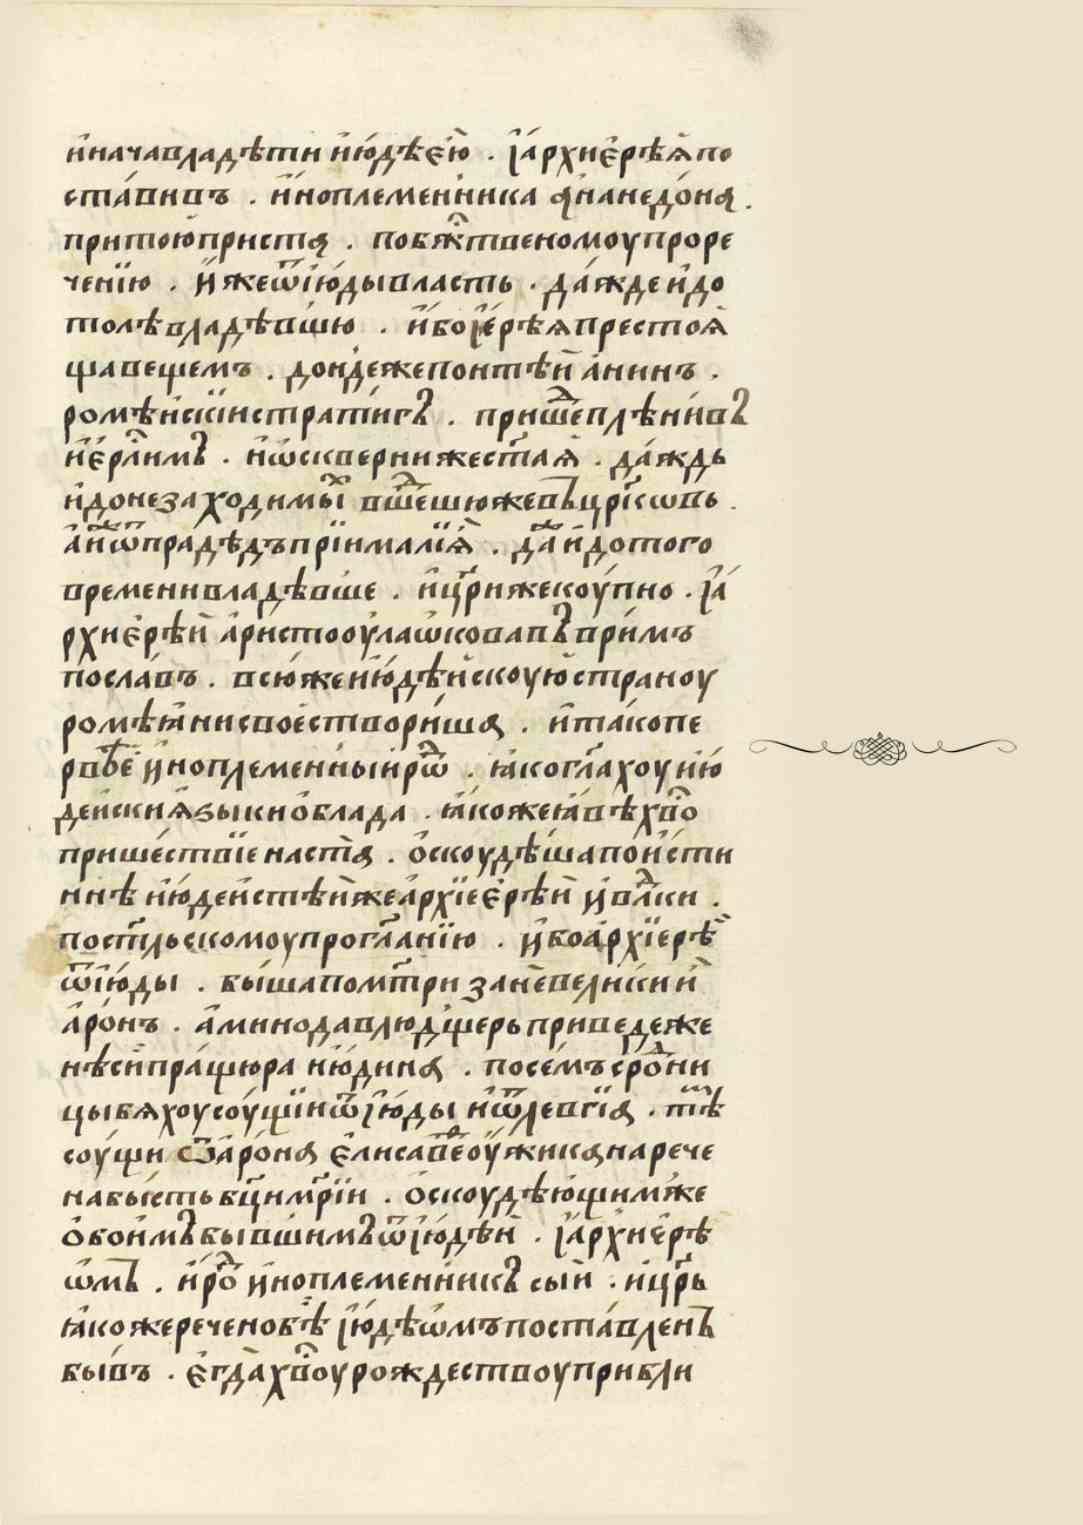 и҆начавладѣти и҆ю҆дѣе́ю . і҆а҆рхие҆рѣѧ по
ста́вивъ . и҆ноплеменника а҆нанело́на .
притоюприста . побж҃твеномоу проре
чен́їю . и҆ жеѿі҆ю́ды власть . да́жде и҆до
толѣ владѣвш́ю . и҆бо і҆е҆рѣѧ престоѧ҆
щавещемъ . дондежепонтѣй а҆нинъ .
ромѣйскїи страти́гъ . прише́плѣни́въ
і҆е҆рл҃имъ . и҆ѡ҆скверни же ст҃аѧ . да́ждь
и҆донезаходимы́х вше́шюжевъцрк҃овь .
а҆иѿпрадѣдъпрїималїѧ . да и҆дотого
времени владѣв́ше . и҆ цр҃и же коу́пно . і҆а́
рхие҆рѣй а҆ристооулаѡ҆ковавъ вримъ
посла́въ . всю́ же и҆ю́дѣйскоуюстраноу
ромѣѧни своестворишѧ . и҆тако пе
рвое и҆ноплеменныи и҆рѡ . ꙗ҆когл҃ахоу и҆ю
дейски ѧ҆зыки о҆блада . ꙗ҆коже ꙗ҆вѣ хв҃о
прише́ствїе наста . о҆скоудѣ́шапои́сти
ннѣ и҆ю҆дейстѣйже а҆рхїее҆рѣй и҆ влⷣки .
по ст҃льскомоу прогл҃анїю . и҆боа҆рхїерѣ
ѿі҆ю́ды . бы́ша по мт҃ри занѐ великий
а҆ро́нъ . а҆минодавлю дщерь приведе же
нѣси́ пра́щюра и҆ю́дина . посе́мъ сро́дни
цы бѧхоу соу́щїи ѿ і҆ю́ды и҆ ѿ левгїа . тѣ
соу́щи ѿ а҆ро́на е҆лисаве о҆у́жика нарече
на бы́сть бц҃и мр҃їи . о҆скоудѣю́щим же
о҆бои́мъ бывшимъ ѿ і҆ю́дѣй . і҆а҆рхиерѣ
ѡ҆мъ . и҆рѡ и҆ноплеменникъ сый . и҆ цр҃ь
ꙗ҆коже речено бѣ і҆ю́дѣѡмъ поста́вленъ
бы́въ . е҆гда̀ хв҃оу рождествоу прибли